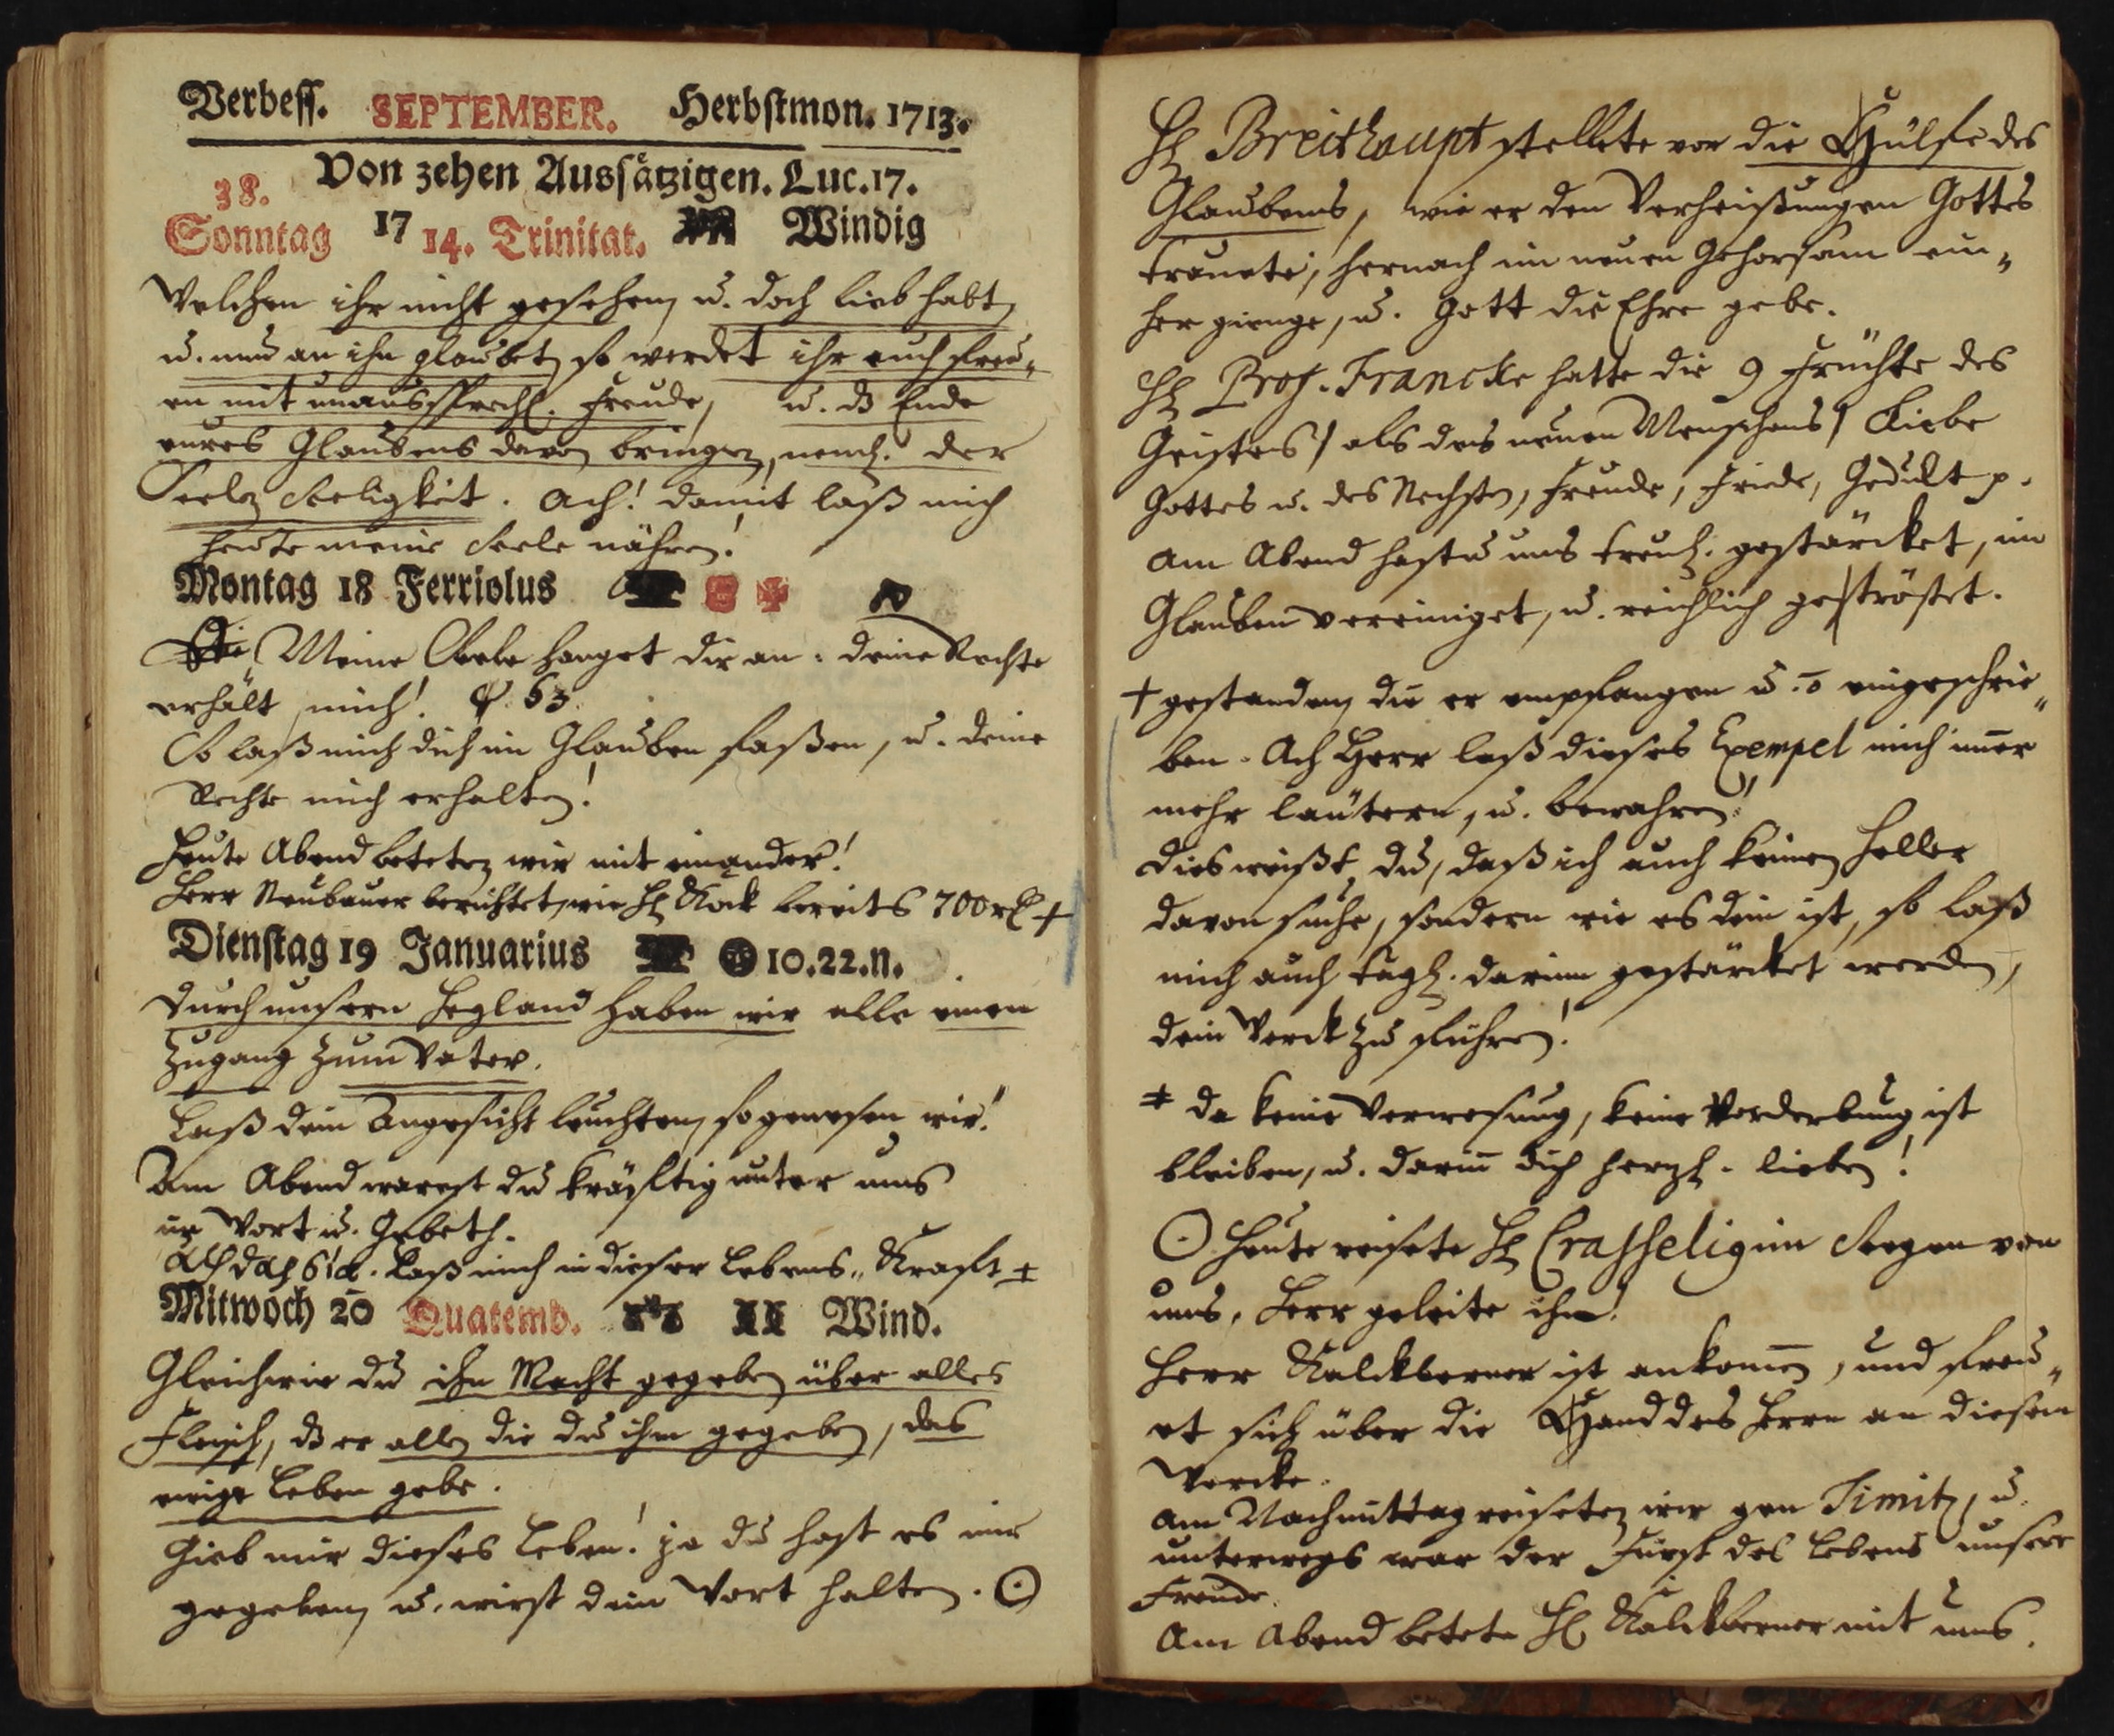 Verbess. SEPTEMBER. Herbstmon. 1713.
Von zehen Aussätzigen. Luc. 17.
38.
Sonntag 17 14. Trinitat. Windig
Welchen ihr nicht gesehen, u. doch lieb habt,
u. nun an ihn glaubet, so werdet ihr euch freu„
en mit unaussprechl. Freude, u. dz Ende
eures Glaubens davon bringen, neml. der
Seelen Seeligkeit. Ach! damit laß mich
heute meine Seele nähren!
Montag 18 Ferriolus
Meine Seele hanget dir an: deine Rechte
erhält mich! ψ. 63.
So laß mich dich im Glauben faßen, u. deine
Rechte mich erhalten!
Heute Abend beteten wir mit einander!
Herr Neubauer berichtet, wie H. Köck bereits 700 rl +
Dienstag 19 Januarius 10.22.n.
Durch unsern Heyland haben wir alle einen
Zugang zum Vater.
Laß dein Angesicht leuchten, so genesen wir!
Am Abend warest du kräfftig unter uns
im Wort u. Gebeth.
Laß mich in dieser Lebens„Krafft ‡
Mitwoch 20 Quatemb. Wind.
Gleichwie du ihn Macht gegeben über alles
Fleisch, dz er allen die du ihm gegeben, das
ewige Leben gebe.
Gieb mir dieses Leben! ja du hast es mir
gegeben, u. wirst dein Wort halten. ☉
H. Breithaupt stellete vor die Hülfe des
Glaubens, wie er den Verheißungen Gottes
trauete, hernach im neuen Gehorsam ein„
her gienge, u. Gott die Ehre gebe.
H. Prof. Francke hatte die 9 Früchte des
Geistes / als des neuen Menschens / Liebe
Gottes u. des Nechsten, Freude, Friede, Gedult p.
Am Abend hastu uns treul. gestärcket, im
Glauben vereiniget, u. reichlich getröstet.
+ gestanden, die er empfangen u. eingeschrie„
ben. Ach Herr laß dieses Exempel mich im̄er
mehr läutern, u. bewahren!
Dies weißt du, daß ich auch keinen Heller
davon suche, sondern wie es dein ist, so laß
mich auch tägl. darinn gestärcket werden,
dein Werck zu führen!
‡ da keine Verwesung, keine Verderbung ist
bleiben, u. darin̄ dich hertzl. lieben!
☉ Heute reisete H. Crasselig im Seegen von
uns, Herr geleite ihn!
Herr Kalckberner ist ankom̄en, und freu„
et sich über die Hand des Herrn an diesem
Wercke.
Am Nachmittag reiseten wir gen Timitz, u.
unterwegs war der Fürst des Lebens unsere
Freude.
Am Abend betete H. Kalckberner mit uns.